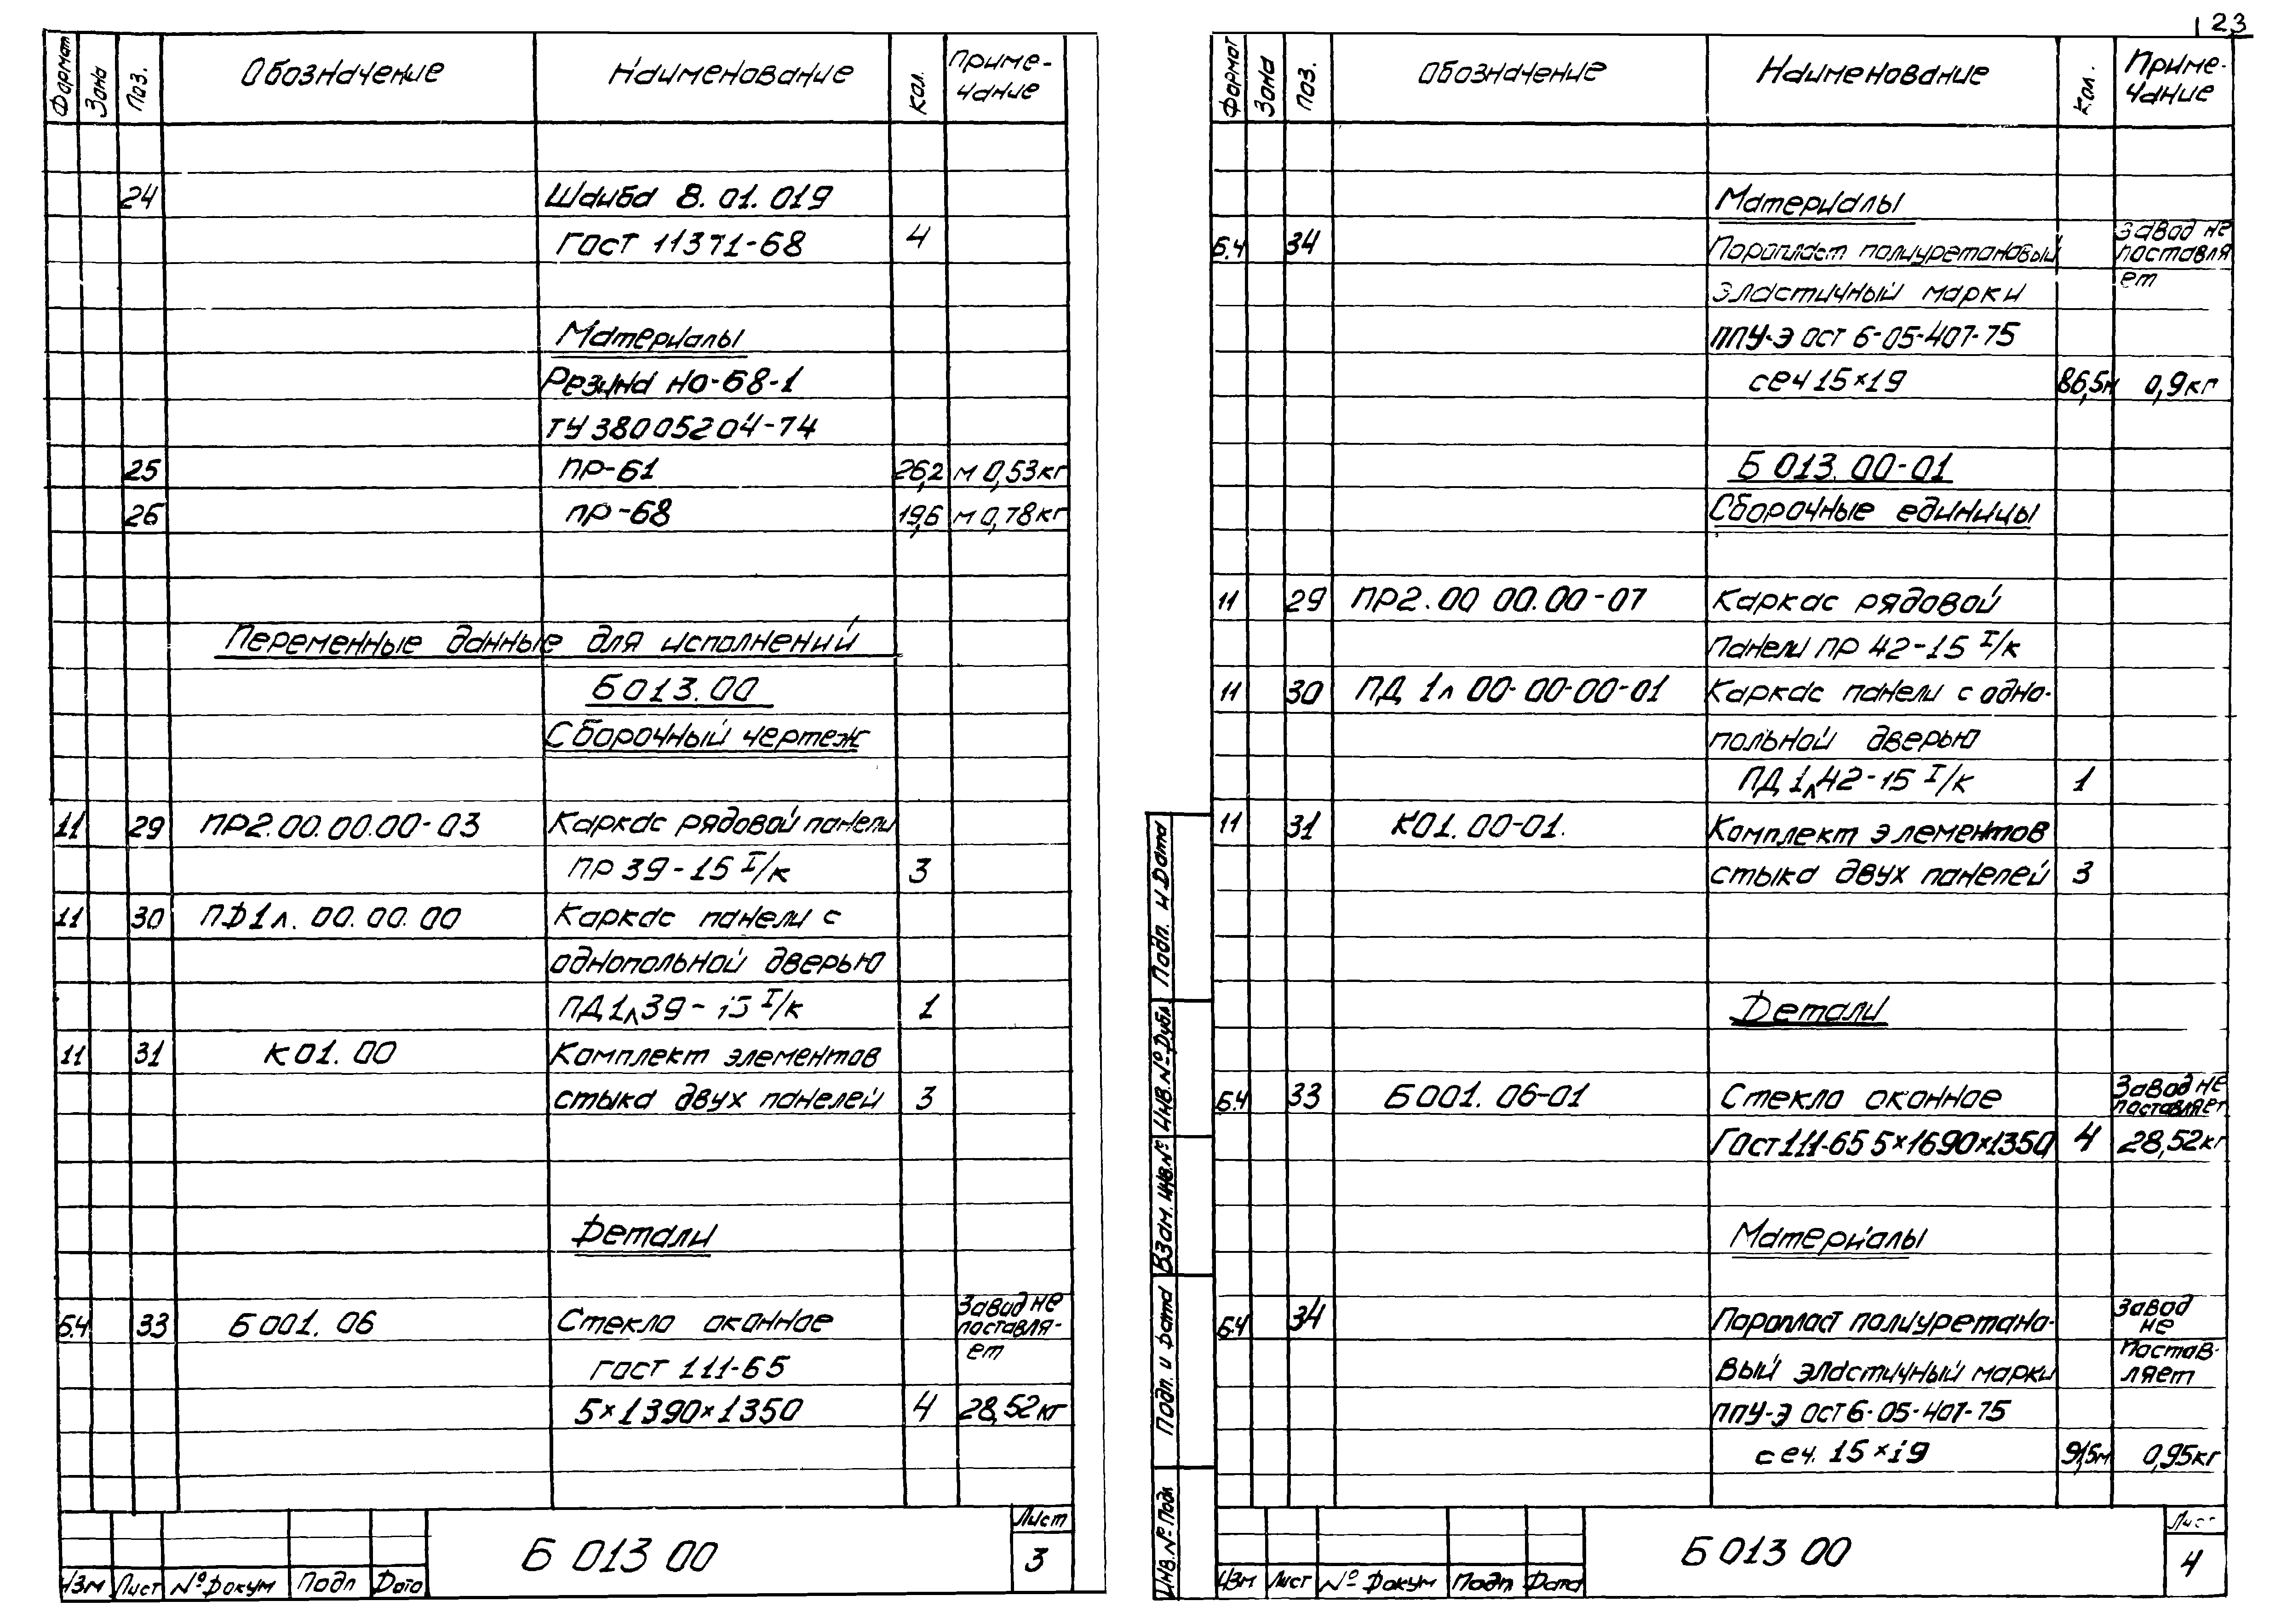 23
Формат Зона Поз. Обозначение Наименование Кол. Приме-
чание
24 Шайба 8.01.019
ГОСТ 11371-68 4
Материалы
Резина НО-68-1
ТУ 38005204-74
25 ПР-61 26,2 м 0,53кг
26 ПР-68 19,6 м 0,78кг
Переменные данные для исполнений
Б013.00
Сборочный чертеж
11 29 ПР2.00.00.00-03 Каркас рядовой панели
ПР 39-15 I/к 3
11 30 ПД1л.00.00.00 Каркас панели с
однопольной дверью
ПД1л39-15 I/к 1
11 31 К01.00 Комплект элементов
стыка двух панелей 3
Детали
Б.Ч 33 Б001.06 Стекло оконное Завод не
поставля-
ГОСТ 111-65 ет
5×1390×1350 4 28,52кг
Б 013 00
Лист
3
Изм Лист № Докум Подп Дата
Формат Зона Поз. Обозначение Наименование Кол. Приме-
чание
Материалы
Б.Ч 34 Поропласт полиуретановый Завод не
поставля
эластичный марки ет
ППУ-Э ОСТ 6-05-407-75
сеч 15×19 86,5м 0,9кг
Б 013.00-01
Сборочные единицы
11 29 ПР2.00 00.00-07 Каркас рядовой
Панели ПР 42-15 I/к
11 30 ПД 1л 00-00-00-01 Каркас панели с одно-
польной дверью
ПД 1л42-15 I/к 1
11 31 К01.00-01. Комплект элементов
стыка двух панелей 3
Детали
Б.Ч 33 Б001.06-01 Стекло оконное Завод не
поставляет
ГОСТ 111-65 5×1690×1350 4 28,52кг
Материалы
Б.Ч 34 Поропласт полиуретано- Завод
не
вый эластичный марки постав-
ляет
ППУ-Э ОСТ 6-05-407-75
сеч. 15×19 91,5м 0,95кг
Подп. и Дата
Инв. № Дубл
Взам. Инв. №
Подп. и Дата
Инв. № Подп
Б 013 00
Лист
4
Изм Лист № Докум Подп Дата